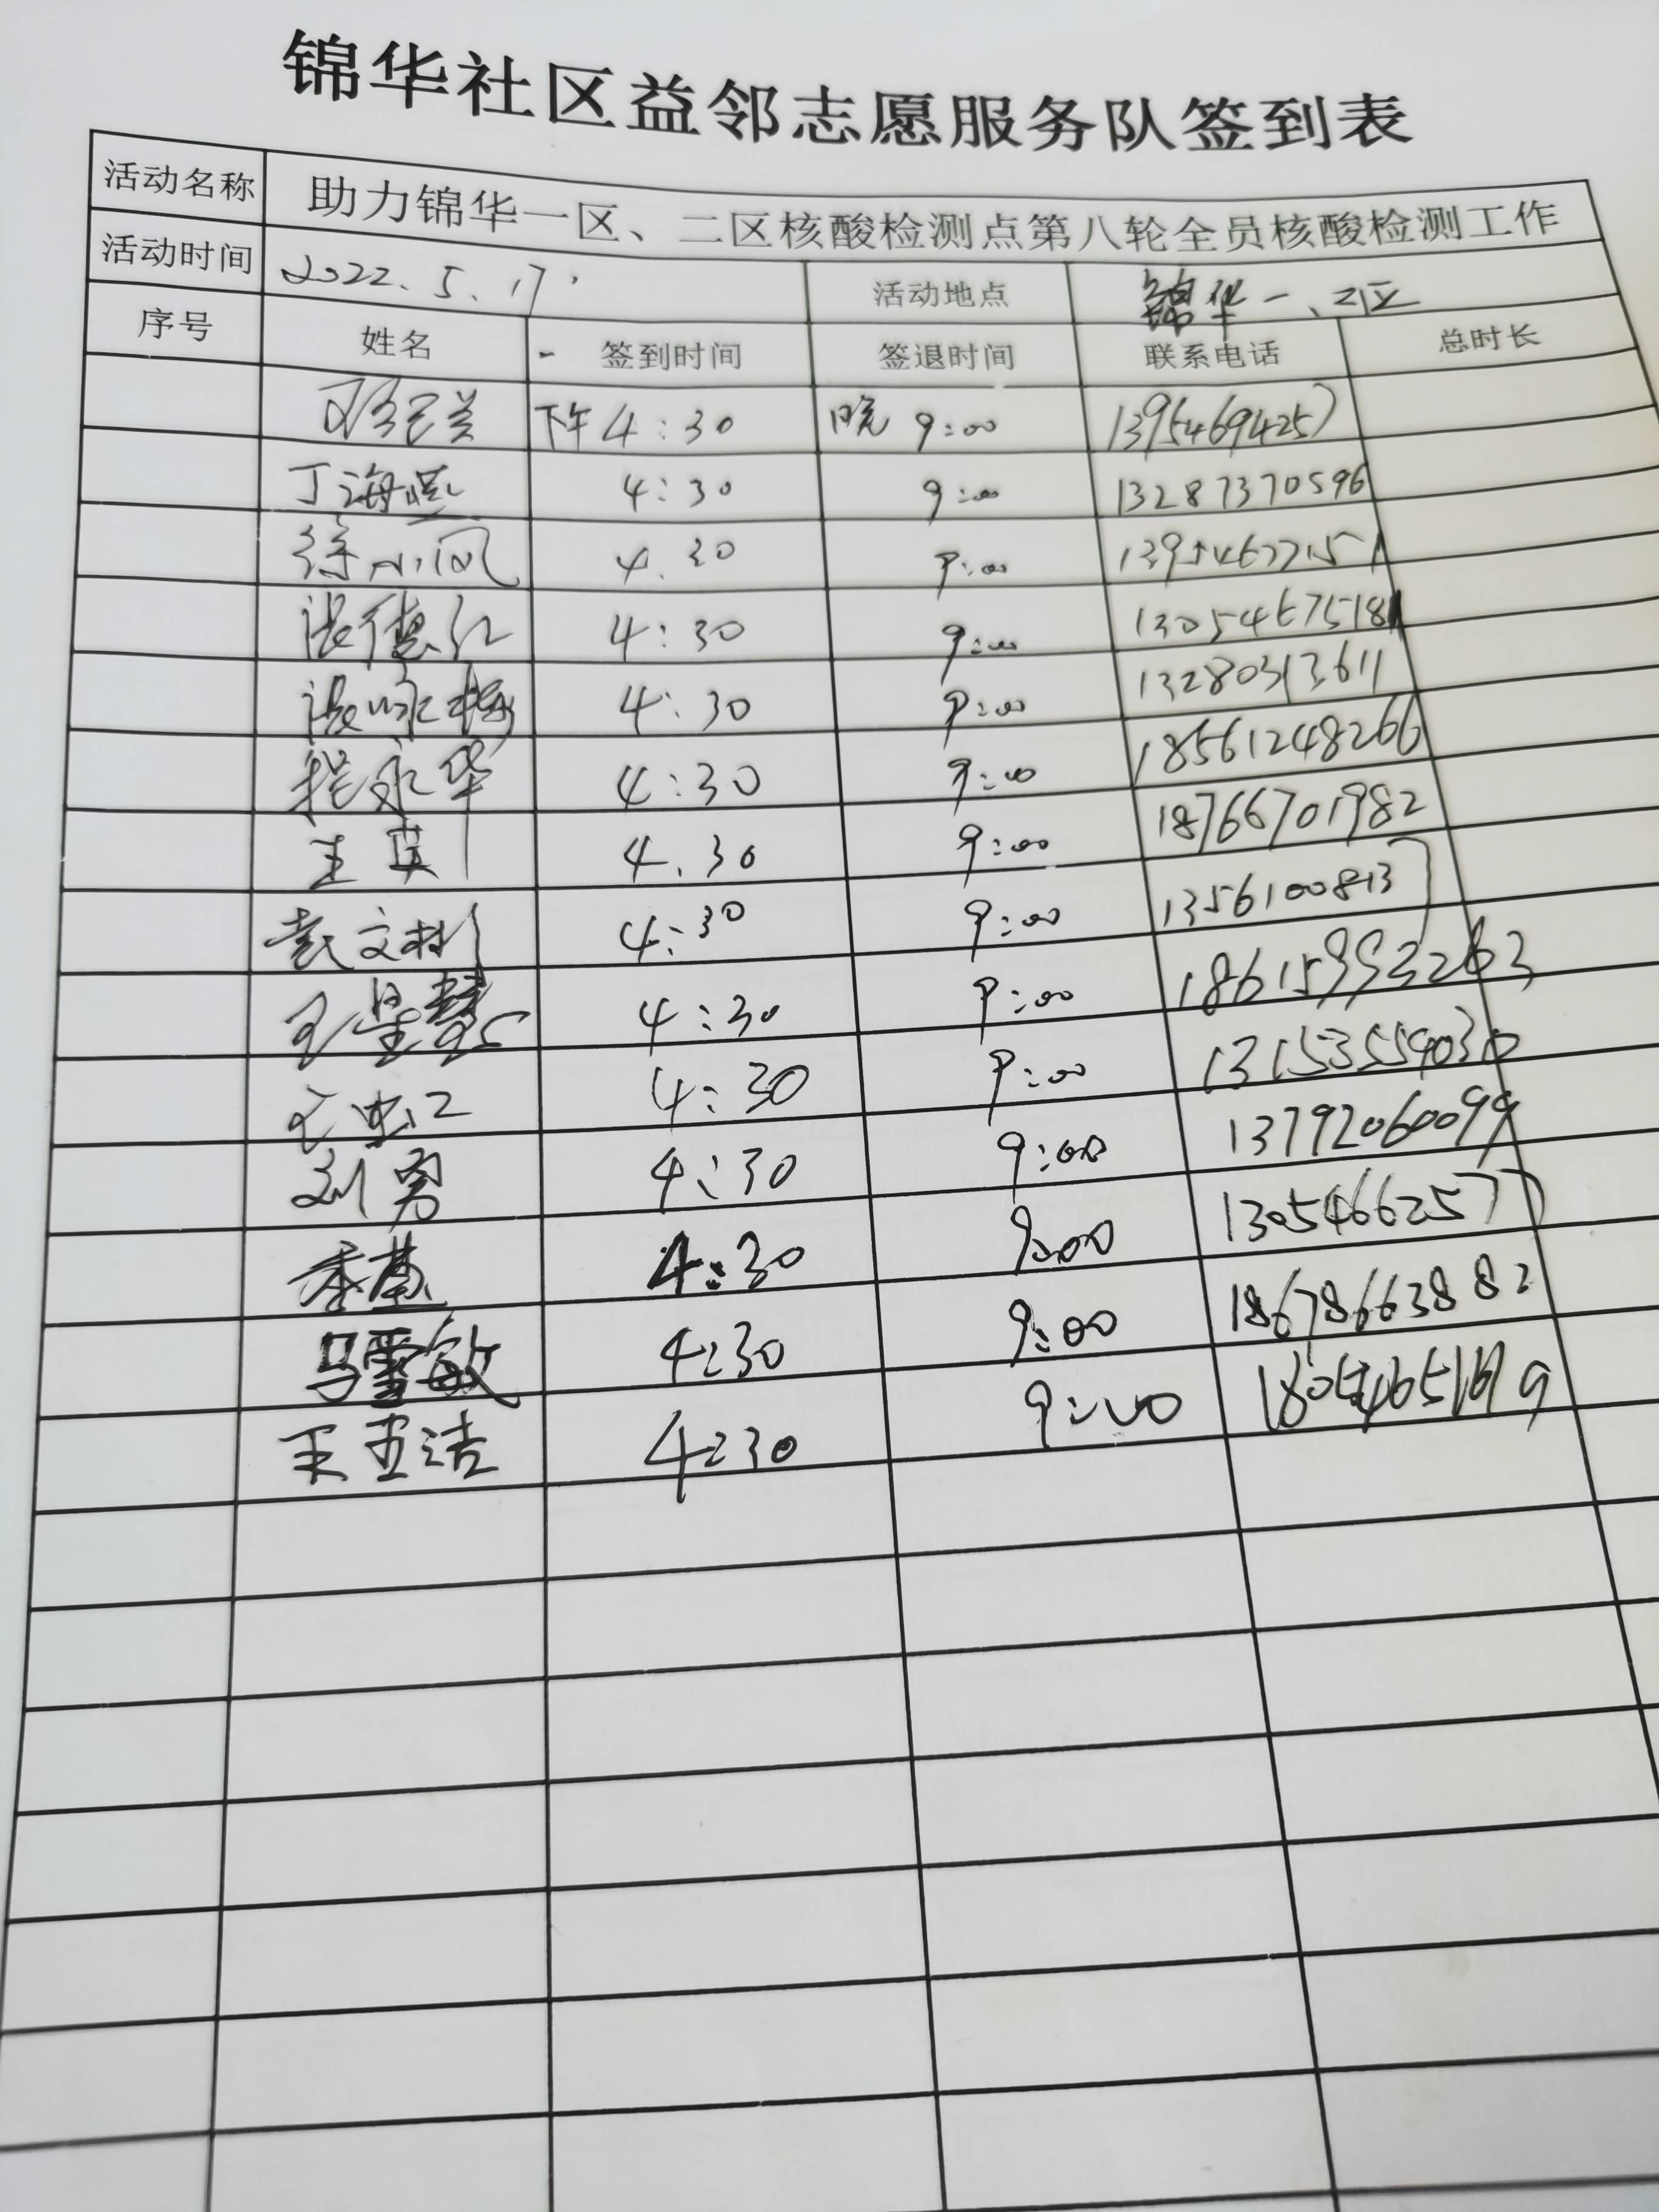 锦华社区益邻志愿服务队签到表
活动名称 助力锦华一区、二区核酸检测点第八轮全员核酸检测工作
活动时间 2022.5.17 活动地点 锦华一、二区
序号 姓名 签到时间 签退时间 联系电话 总时长
下午 4:30 晚 9:00 13954694257
丁海燕 4:30 9:00 13287370596
徐小凤 4.30 9:00 13954677151
张德红 4:30 9:00
张咏梅 4:30 9:00 13280313611
程永华 4:30 9:00 18561248266
王英 4.30 9:00 18766701982
袁文彬 4:30 9:00
王星慧 4:30 9:00 18615993263
王 4:30 9:00
刘勇 4:30 9:00 13792060099
李燕 4:30 9:00 13054662577
马雪敏 4:30 9:00 18678663882
王亚洁 4:30 9:00